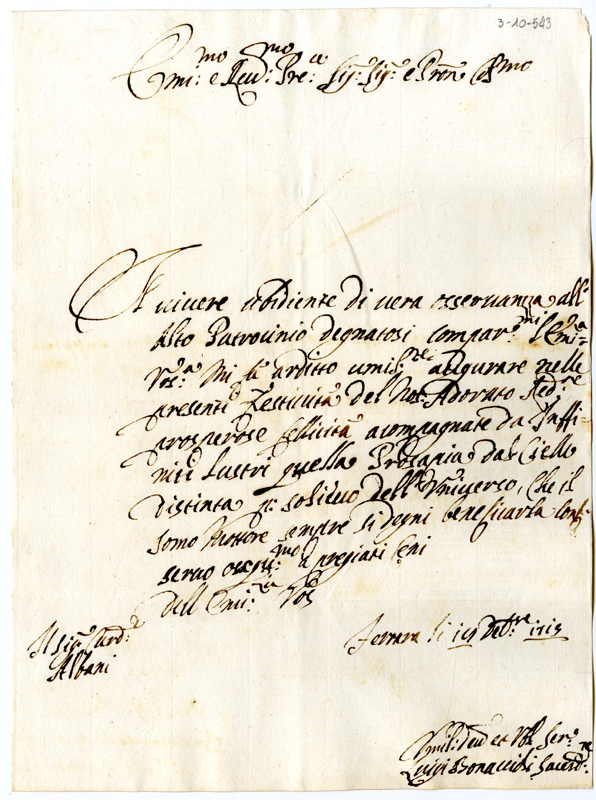 3-10-543
Em:mo e Reu:mo Pre:e Sig:r Sig:r e Pron Col:mo
Il vivere ubidiente di vera osservanza all
Alto Patrocinio degnatosi compar:mi l'Emi:=za
Vos:a Mi fà arditto umil:te augurare nelle
presenti Festività del Nos: Adorato Red:re
prosperose fellicità acompagnate da Inffi-
niti Lustri quella Prosapia dal Cielle
distinta p: solievo dell Vniverso, Che il
somo Mottore sempre si degni beneficarla
servo osseq:mo a pregiati Ceni
dell Emi:za Vos
Ferrara li Xbre
Al Sig:r Card:e
Albani
Vmil: Deu et Obl Ser:re
Luigi Bonaccioli Sacerd:te